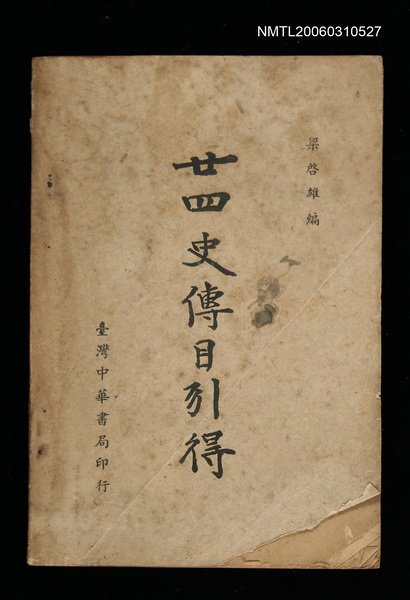 NMTL20060310527
梁啓雄編
廿四史傳目引得
臺灣中華書局印行